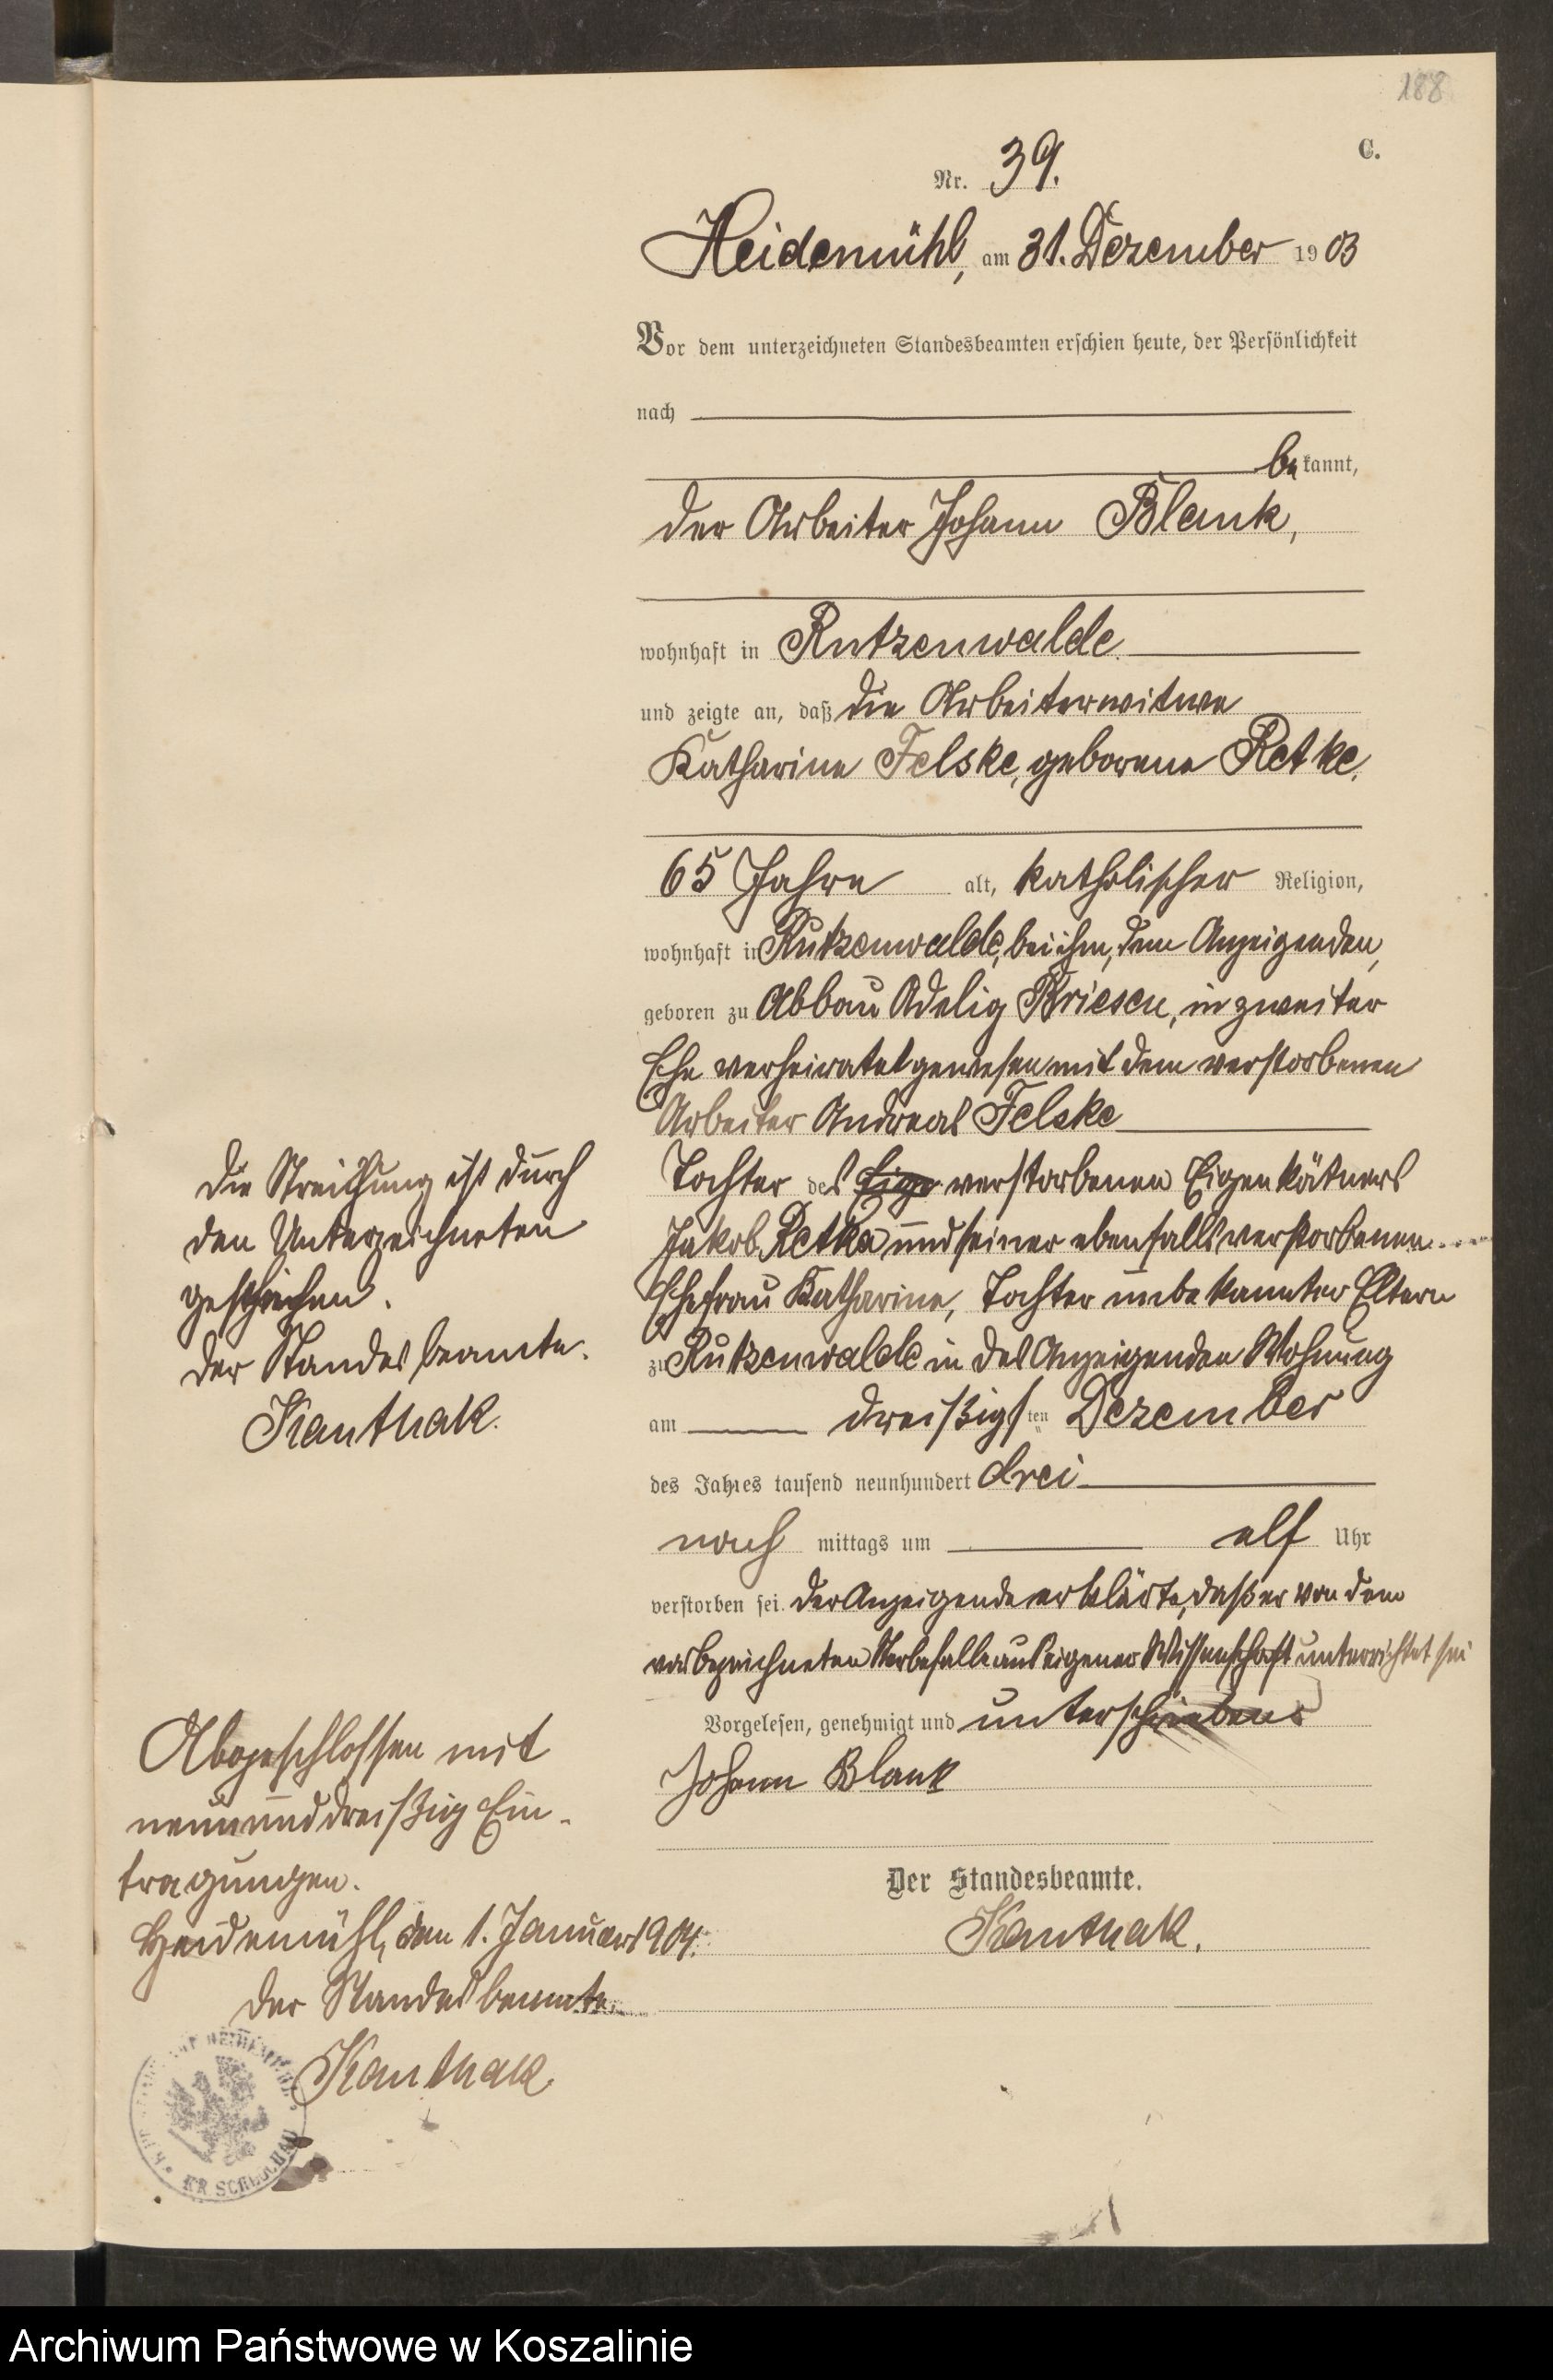 188
C.
Nr. 39.
Heidemühl, am 31. Dezember 1903
Vor dem unterzeichneten Standesbeamten erschien heute, der Persönlichkeit
nach
bekannt,
der Arbeiter Johann Blank,
wohnhaft in Rutzenwalde
und zeigte an, daß die Arbeiterwitwe
Katharina Felske, geborene Retke,
65 Jahre alt, katholischer Religion,
wohnhaft in Rutzenwalde, bei ihm, dem Anzeigenden,
geboren zu Abbau Adelig Briesen, in zweiter
Ehe verheiratet gewesen mit dem verstorbenen
Arbeiter Andreas Felske
Tochter des Eige verstorbenen Eigenkätners
Jakob Retka und seiner ebenfalls verstorbenen
Ehefrau Katharina, Tochter unbekannter Eltern
zu Rutzenwalde in des Anzeigenden Wohnung
am dreißigsten Dezember
des Jahres tausend neunhundert drei
nach mittags um elf Uhr
verstorben sei. Der Anzeigende erklärte, daß er von dem
vorbezeichneten Sterbefalle aus eigener Wissenschaft unterrichtet sei
Vorgelesen, genehmigt und unterschrieben
Johann Blank
Der Standesbeamte.
Kanthak.
Die Streichung ist durch
den Unterzeichneten
geschehen.
Der Standesbeamte.
Kanthak.
Abgeschlossen mit
neununddreißig Ein-
tragungen.
Heidemühl, den 1. Januar 1904.
Der Standesbeamte
Kanthak
KR SCHLOCHAU
Archiwum Państwowe w Koszalinie